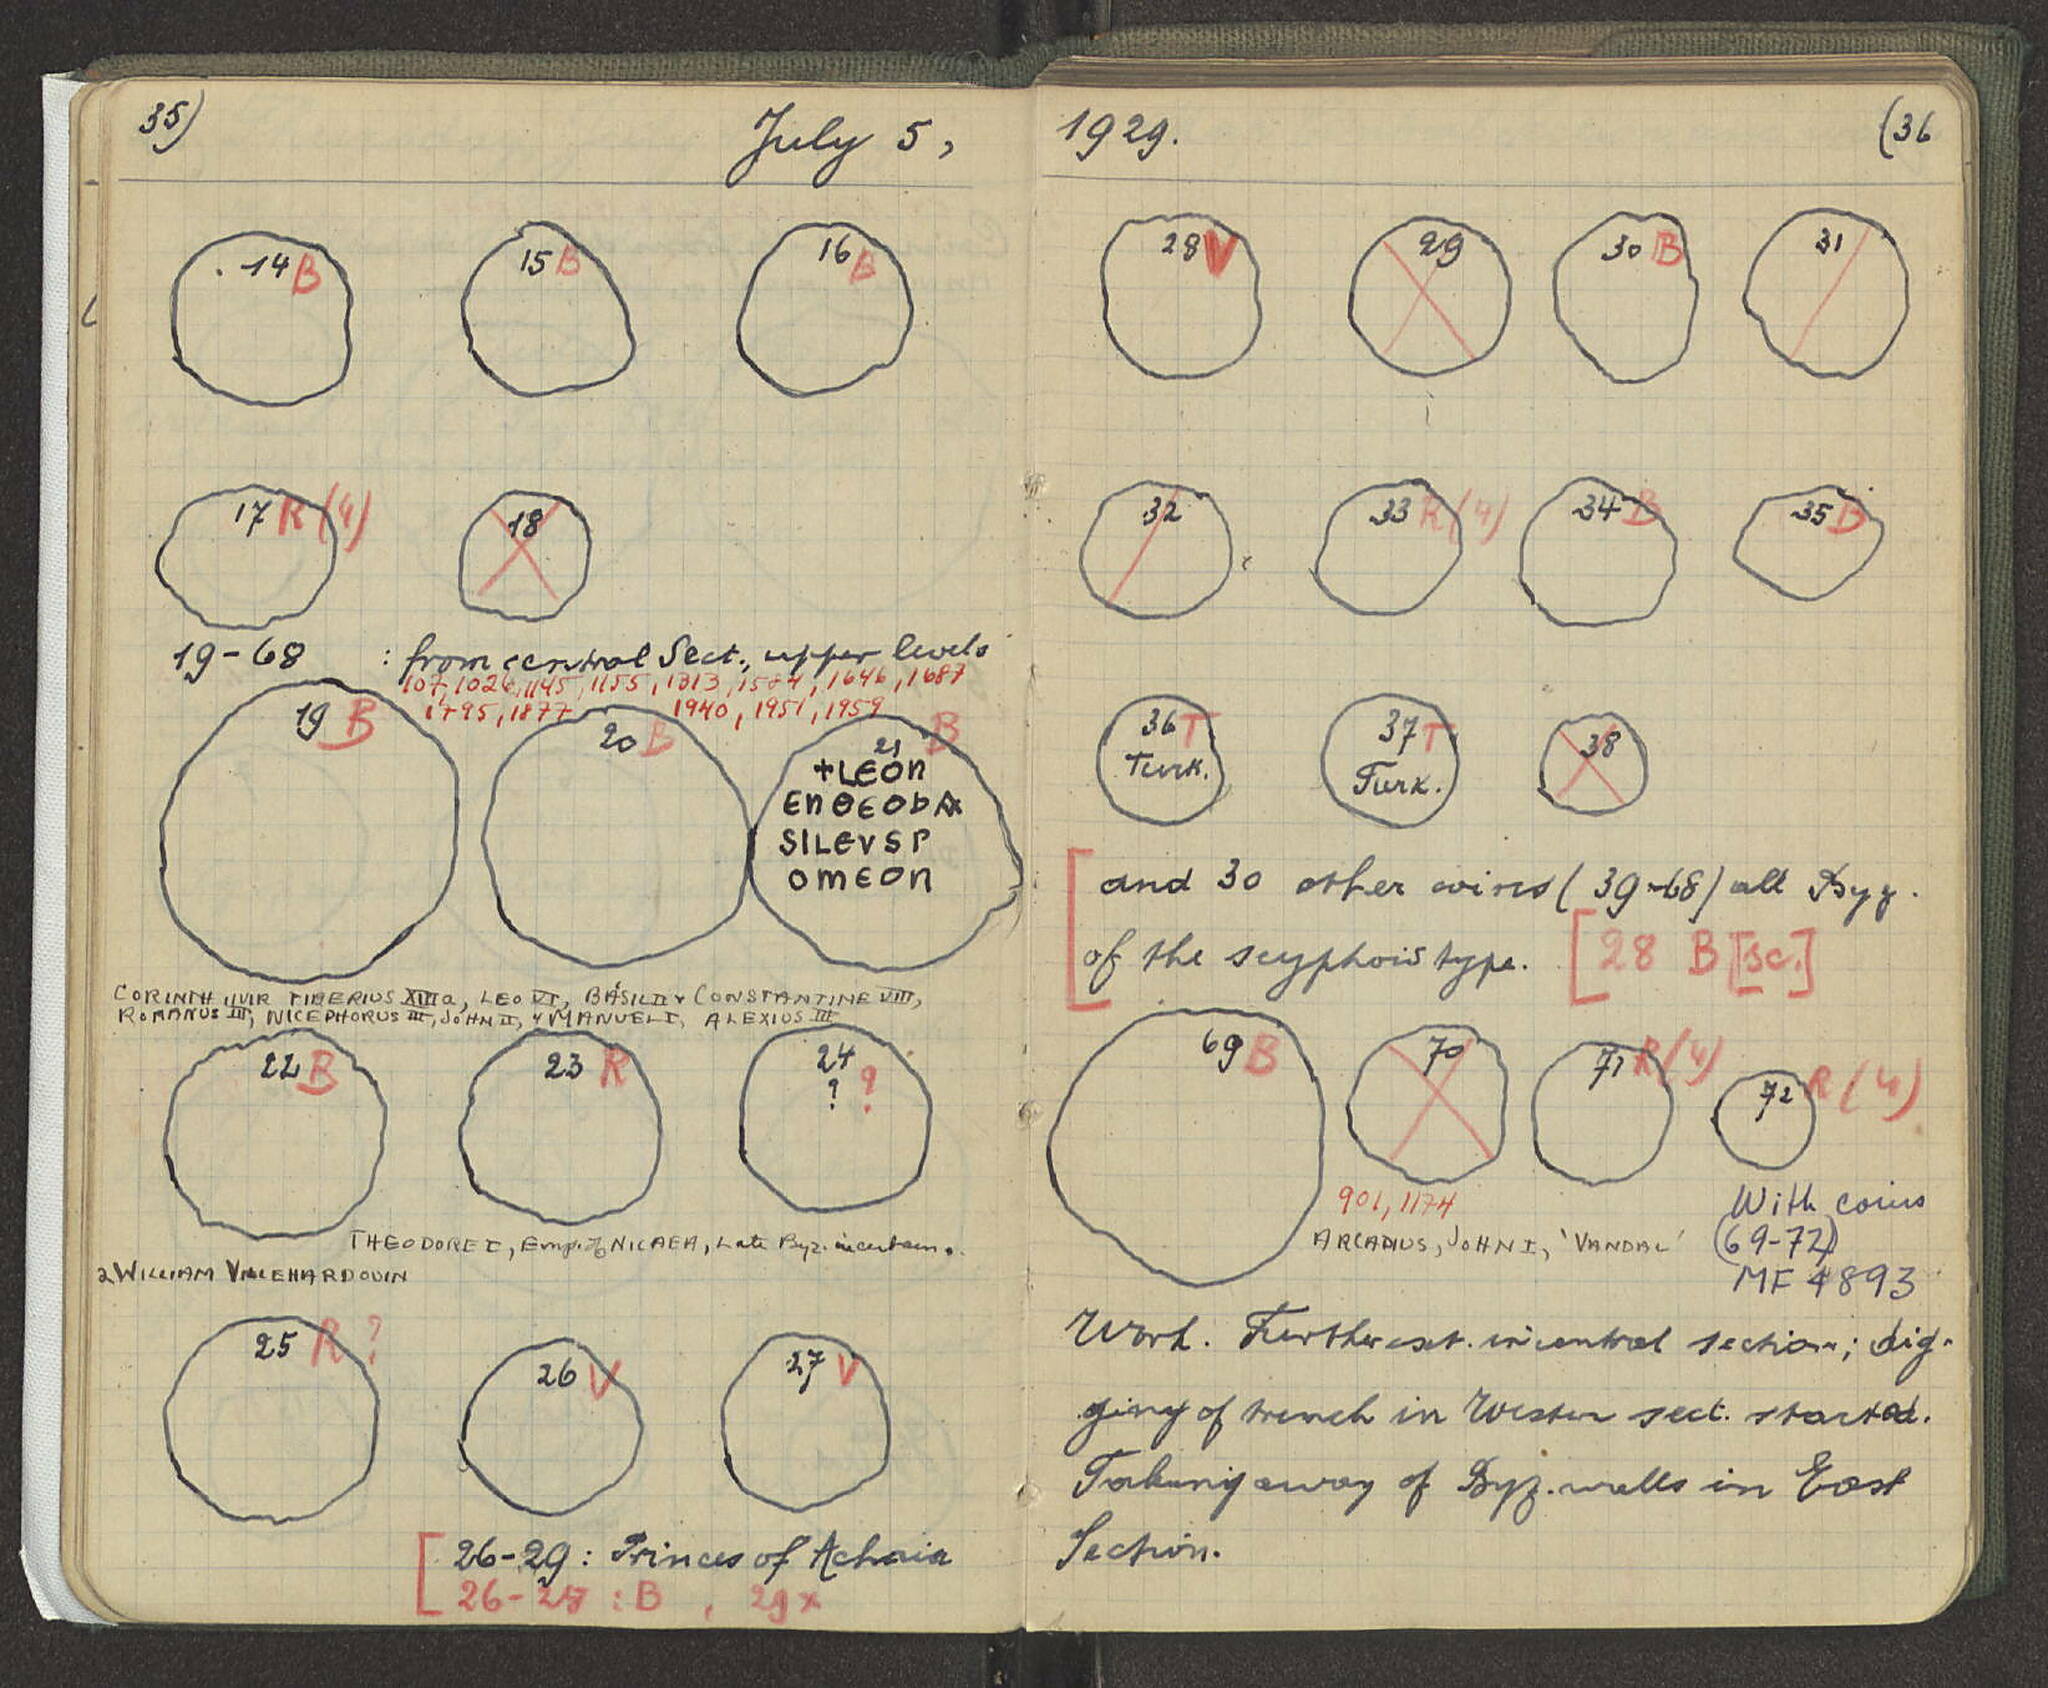 35)
July 5,
14 B
15 B
16 B
17 R (4)
18
19-68 : from central Sect., upper levels
107, 1026, 1145, 1155, 1313, 1584, 1646, 1687
1795, 1877 1940, 1951, 1959
19 B
20 B
21 B
+LEON
ENΘEObA
SILEVSP
OMEON
CORINTH IIVIR TIBERIUS XIIIa, LEO VI, BASIL II & CONSTANTINE VIII,
ROMANUS III, NICEPHORUS III, JOHN II, & MANUEL I, ALEXIUS III
22 B
23 R
24
? ?
THEODORE I, Emp. of NICAEA, Late Byz. uncertain.
2 WILLIAM VILLEHARDOUIN
25 R?
26 V
27 V
26-29: Princes of Achaia
26-28 : B , 29 x
1929.
(36
28 V
29
30 B
31
32
33 R (4)
34 B
35 B
36 T
Turk.
37 T
Turk.
38
and 30 other coins (39-68) all Byz.
of the scyphoid type. [28 B [sc.]
69 B
70
71 R (4)
72 R (4)
901, 1174
ARCADIUS, JOHN I, 'VANDAL'
With coins
(69-72)
MF 4893
Work. Further ext. in central section; dig-
ging of trench in Western sect. started.
Taking away of Byz. walls in East
Section.